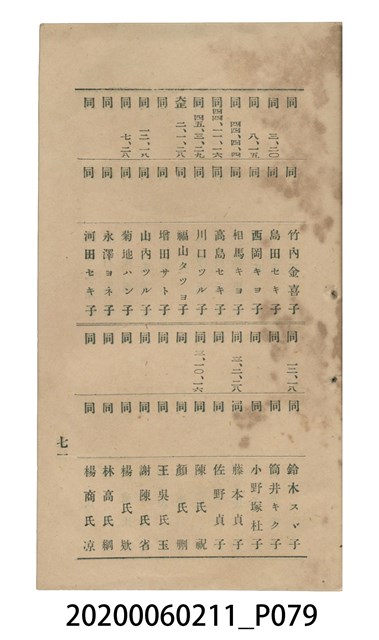 同 同 竹內金喜子
同 三、二〇 同 島田セキ子
同 八、一五 同 西岡キヨ子
同 四、四、四 同 相馬キヨ子
同 四、一一、一六 同 高島セキ子
同 四五、三、二九 同 川口ツル子
二、一、二八 同 福山タツヨ子
同 同 增田サト子
同 一二、一八 同 山內ツル子
同 七、二八 同 菊地ハン子
同 同 永澤ヨネ子
同 同 河田セキ子
同 一二、一八 同 鈴木スヾ子
同 同 筒井キク子
同 同 小野塚杜子
同 三、二、二八 同 藤本貞子
同 同 佐野貞子
同 三、一〇、一六 同 陳氏祝
同 同 顏氏
同 同 王吳氏玉
同 同 謝陳氏省
同 同 楊氏欵
同 同 林高氏
同 同 楊商氏凉
七一
20200060211_P079